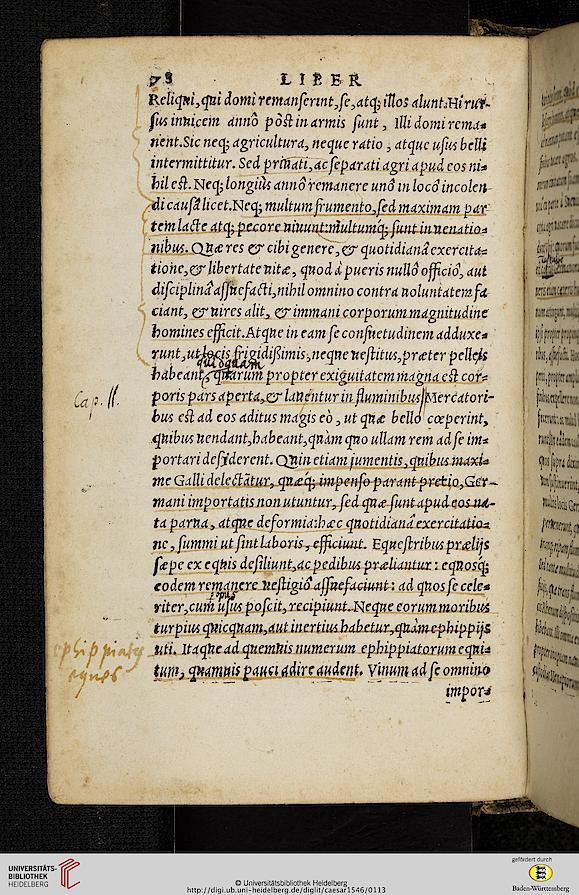 78 LIBER
Reliqui, qui domi remanserint, se, atq; illos alunt. Hi rur-
sus inuicem anno pòst in armis sunt, Illi domi rema-
nent. Sic neq; agricultura, neque ratio, atque usus belli
intermittitur. Sed priuati, ac separati agri apud eos ni-
hil est. Neq; longiùs anno remanere uno in loco incolen
di causa licet. Neq; multum frumento, sed maximam par
tem lacte atq; pecore uiuunt: multumq; sunt in uenatio-
nibus. Quæ res & cibi genere, & quotidiana exercita-
tione, & libertate uitæ, quod à pueris nullo officio, aut
disciplina assuefacti, nihil omnino contra uoluntatem fa
ciant, & uires alit, & immani corporum magnitudine
homines efficit. Atque in eam se consuetudinem adduxe-
runt, ut locis frigidißimis, neque uestitus, præter pelleis
quidquam
habeant, quarum propter exiguitatem magna est cor-
Cap. II.
poris pars aperta, & lauentur in fluminibus. Mercatori-
bus est ad eos aditus magis eò, ut quæ bello cœperint,
quibus uendant, habeant, quàm quo ullam rem ad se im-
portari desyderent. Quin etiam jumentis, quibus maxi-
me Galli delectãtur, quæq; impenso parant pretio, Ger-
mani importatis non utuntur, sed quæ sunt apud eos na-
ta parua, atque deformia: hæc quotidiana exercitatio-
ne, summi ut sint laboris, efficiunt. Equestribus prælijs
sæpe ex equis desiliunt, ac pedibus præliantur: equosq;
eodem remanere uestigio assuefaciunt: ad quos se cele-
opus
riter, cum usus poscit, recipiunt. Neque eorum moribus
turpius quicquam, aut inertius habetur, quàm ephippijs
uti. Itaque ad quemuis numerum ephippiatorum equi-
ephippiatus
eques
tum, quamuis pauci adire audent. Vinum ad se omnino
impor-
UNIVERSITÄTS-
BIBLIOTHEK
HEIDELBERG
© Universitätsbibliothek Heidelberg
http://digi.ub.uni-heidelberg.de/diglit/caesar1546/0113
gefördert durch
Baden-Württemberg